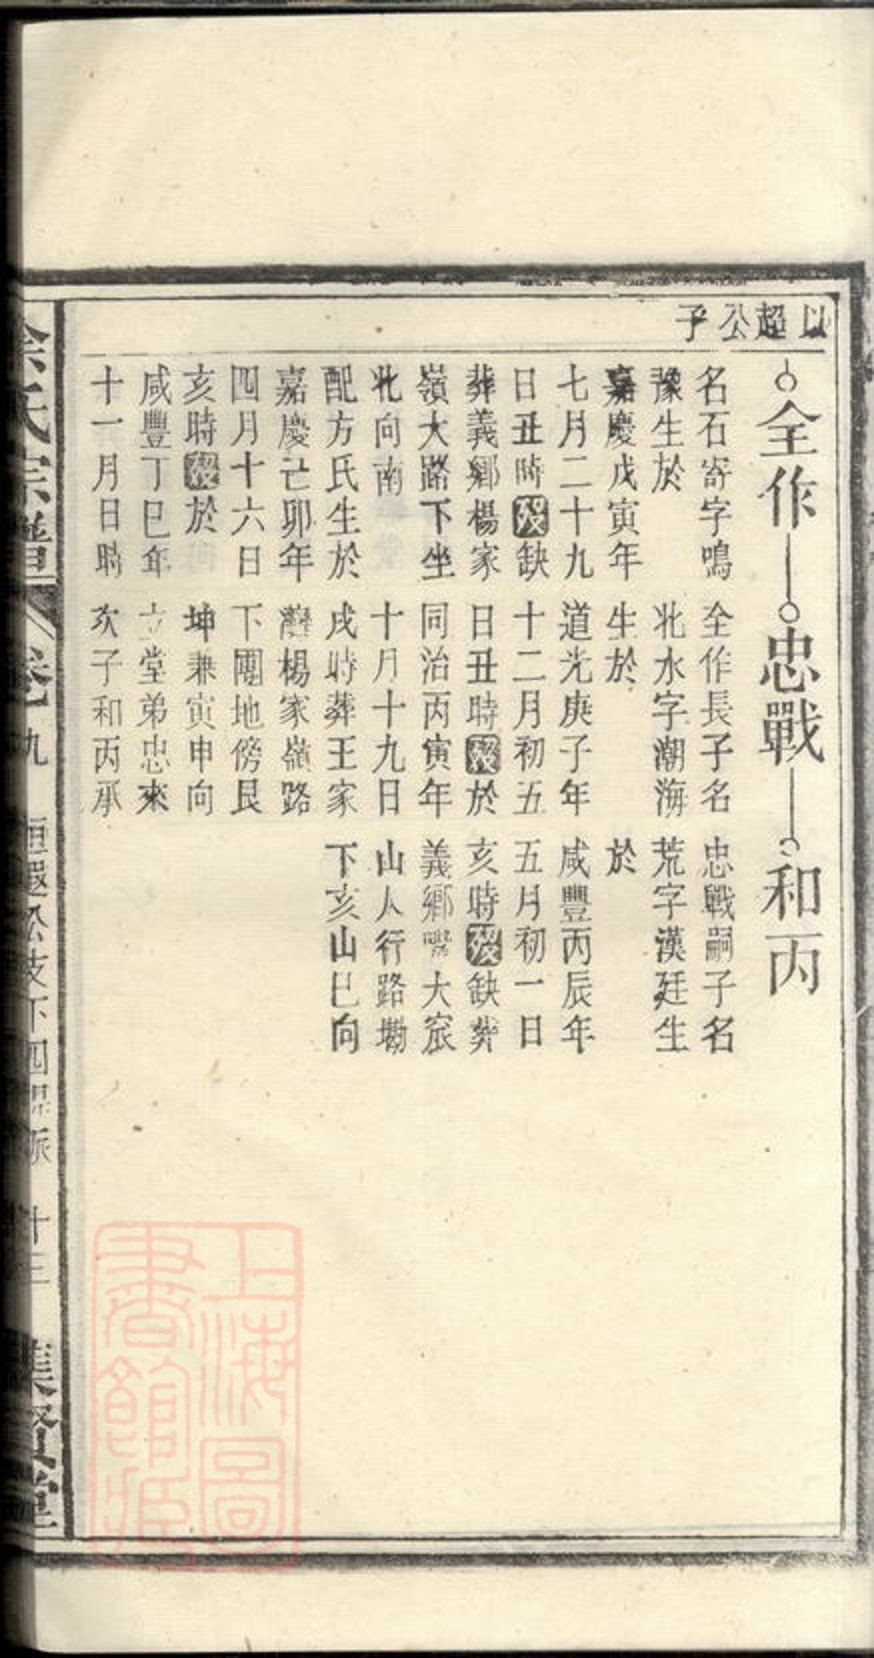 以超公子
全作 忠戰 和丙
名石寄字鳴
豫生於
嘉慶戊寅年
七月二十九
日丑時歿缺
葬義鄉楊家
嶺大路下坐
北向南
配方氏生於
嘉慶己卯年
四月十六日
亥時歿於
咸豐丁巳年
十一月日時
全作長子名
兆水字潮海
生於
道光庚子年
十二月初五
日丑時歿於
同治丙寅年
十月十九日
戌時葬王家
灣楊家嶺路
下團地傍艮
坤兼寅申向
立堂弟忠來
次子和丙承
忠戰嗣子名
荒字漢廷生
於
咸豐丙辰年
五月初一日
亥時歿缺葬
義鄉嘴大窊
山人行路塝
下亥山巳向
余氏宗譜 卷九 恒遐公支下四 派 十三 集賢堂
上海圖書館藏